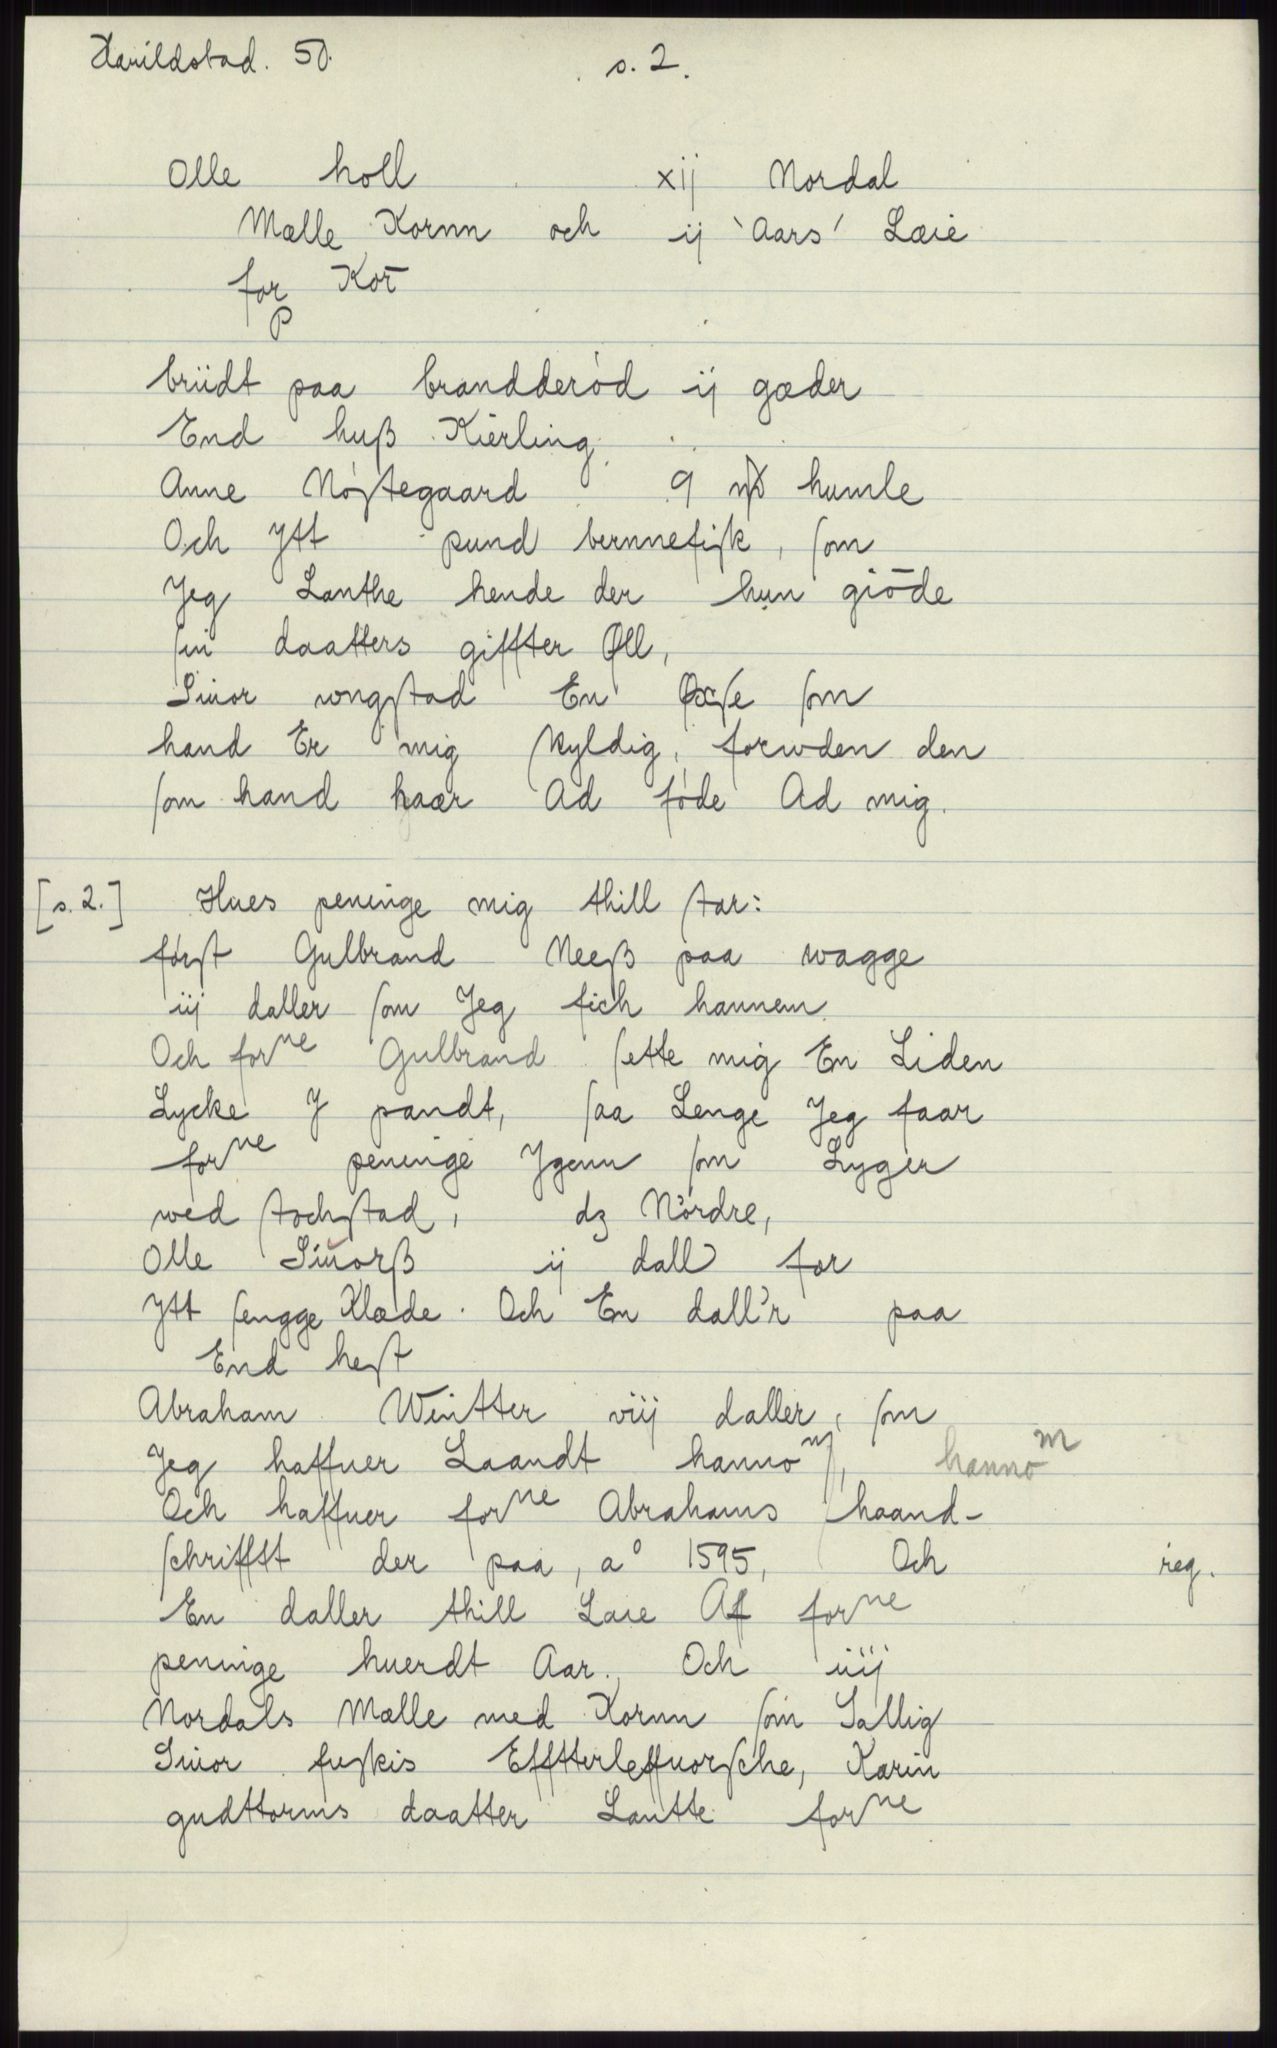 Harildstad. 50.
s. 2.
Olle holl xij Nordal
Mælle Kornn och ij ‵Aars′ Læie
for Kor̄
P
brüdt paa brandderød ij gæder
End huß Kierling
Anne Nøſtegaard 9 humle
Och Ytt pund bernnefiſk, ſom
Jeg Lanthe hende der hun giōde
ſin daatters giffter Øll,
Siuor wngſtad En Oxſe ſom
hand Er mig ſkyldig, forwden den
ſom hand haær Ad føde Ad mig.
[s. 2.] Hues peninge mig thill ſtar:
førſt Gulbrand Neeß paa wagge
iij daller ſom Jeg fich hannem
Och forne Gulbrand ſette mig En Liden
Lycke J pandt, ſaa Lenge Jeg faar
forne peninge Ygenn ſom Lyger
wed ſtochſtad, dz Nørdre,
Olle Siuorß ij dall for
Ytt ſengge Klæde. Och En dall'r paa
End heſt
Abraham Wintter viij daller, ſom
Jeg haffuer Laandt hannom, hannom
Och haffuer forne Abrahams haand-
ſchrifftt der paa, a° 1595, Och reg.
En daller thill Laie Af forne
peninge huerdt Aar. Och iiij
Nordals Mælle med Kornn ſom Sallig
Siuor fuſkis Efftterleffuorſche, Karin
gudttorms daatter Lantte forne